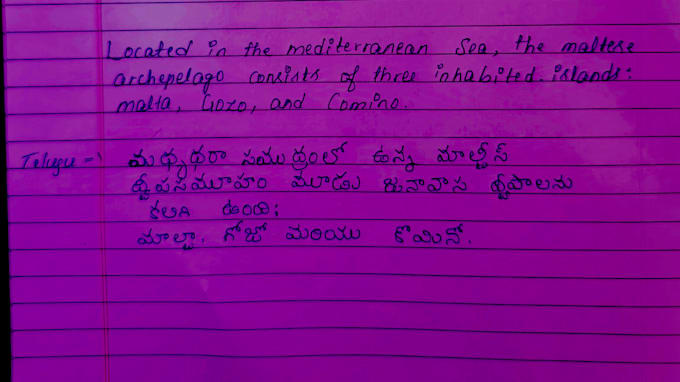 Located in the mediterranean Sea, the maltese
archepelago consists of three inhabited. islands:
malta, Gozo, and Comino.
Telugu -> మధ్యధరా సముద్రంలో ఉన్న మాల్టీస్
ద్వీపసమూహం మూడు జనావాస ద్వీపాలను
కలిగి ఉంది;
మాల్టా, గోజో మరియు కొమినో.